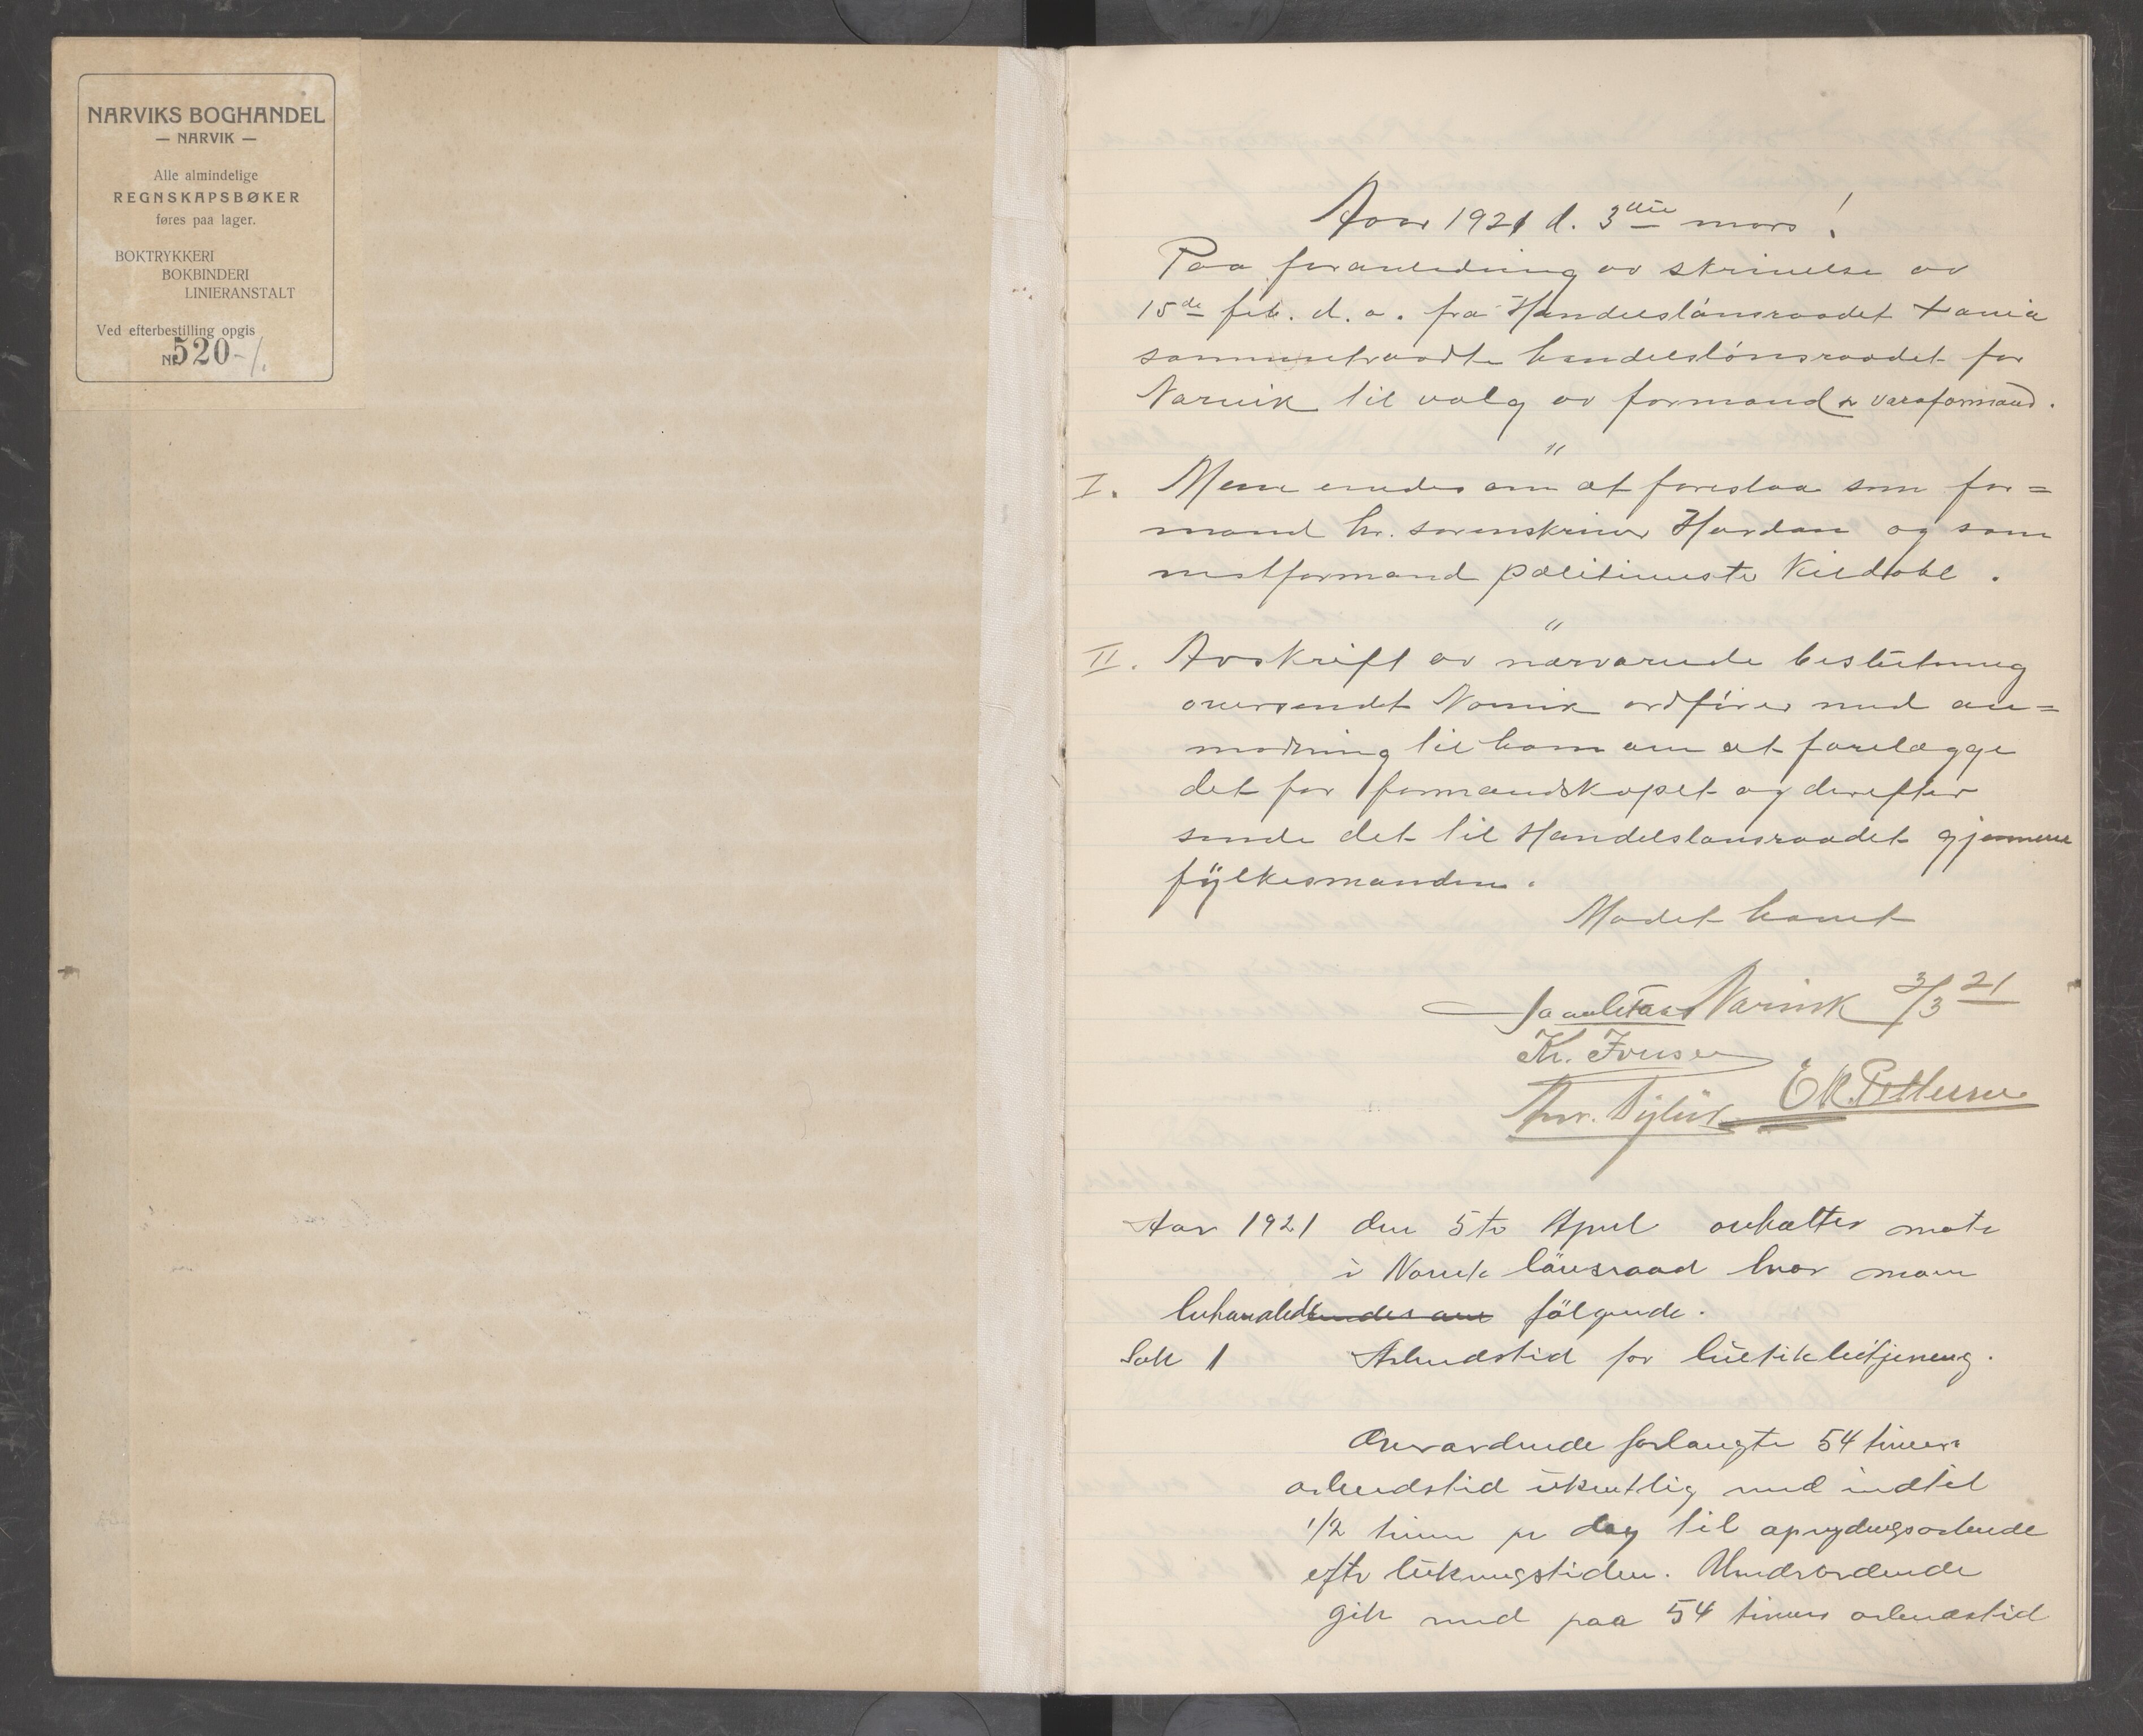 NARVIKS BOGHANDEL
— NARVIK —
Alle almindelige
REGNSKAPSBØKER
føres paa lager.
BOKTRYKKERI
BOKBINDERI
LINIERANSTALT
Ved efterbestilling opgis
Nr. 520-/.
Aar 1921 d. 3die mars!
Paa foranledning av skrivelse av
15de feb. d. a. fra Handelslönsraadet X ania
sammentraadte handelslönsraadet for
Narvik til valg av formand & varaformand.
"
I. Men enedes om at foreslaa som for=
mand hr. sorenskriver Hardan og som
nestformand politimester Kildahl.
"
II. Avskrift av nærværende beslutning
oversendet Narvik ordfører med an=
modning til ham om at forelægge
det for formandskapet og derefter
sende det til Handelslønsraadet gjennem
fylkesmanden.
Mødet hævet
Narvik 3/3 21
Kr. Jensen
E K. Pettersen
Aar 1921 den 5te April avholtes møte
i Narvik lönsraad hvor man
behandlet endes om fölgende.
Sak 1 Arbeidstid for butikbetjening.
Overordnede forlangte 54 timers
arbeidstid ukentlig med indtil
1/2 time pr dag til oprydningsarbeide
efter lukningstiden. Underordnede
gik med paa 54 timers arbeidstid